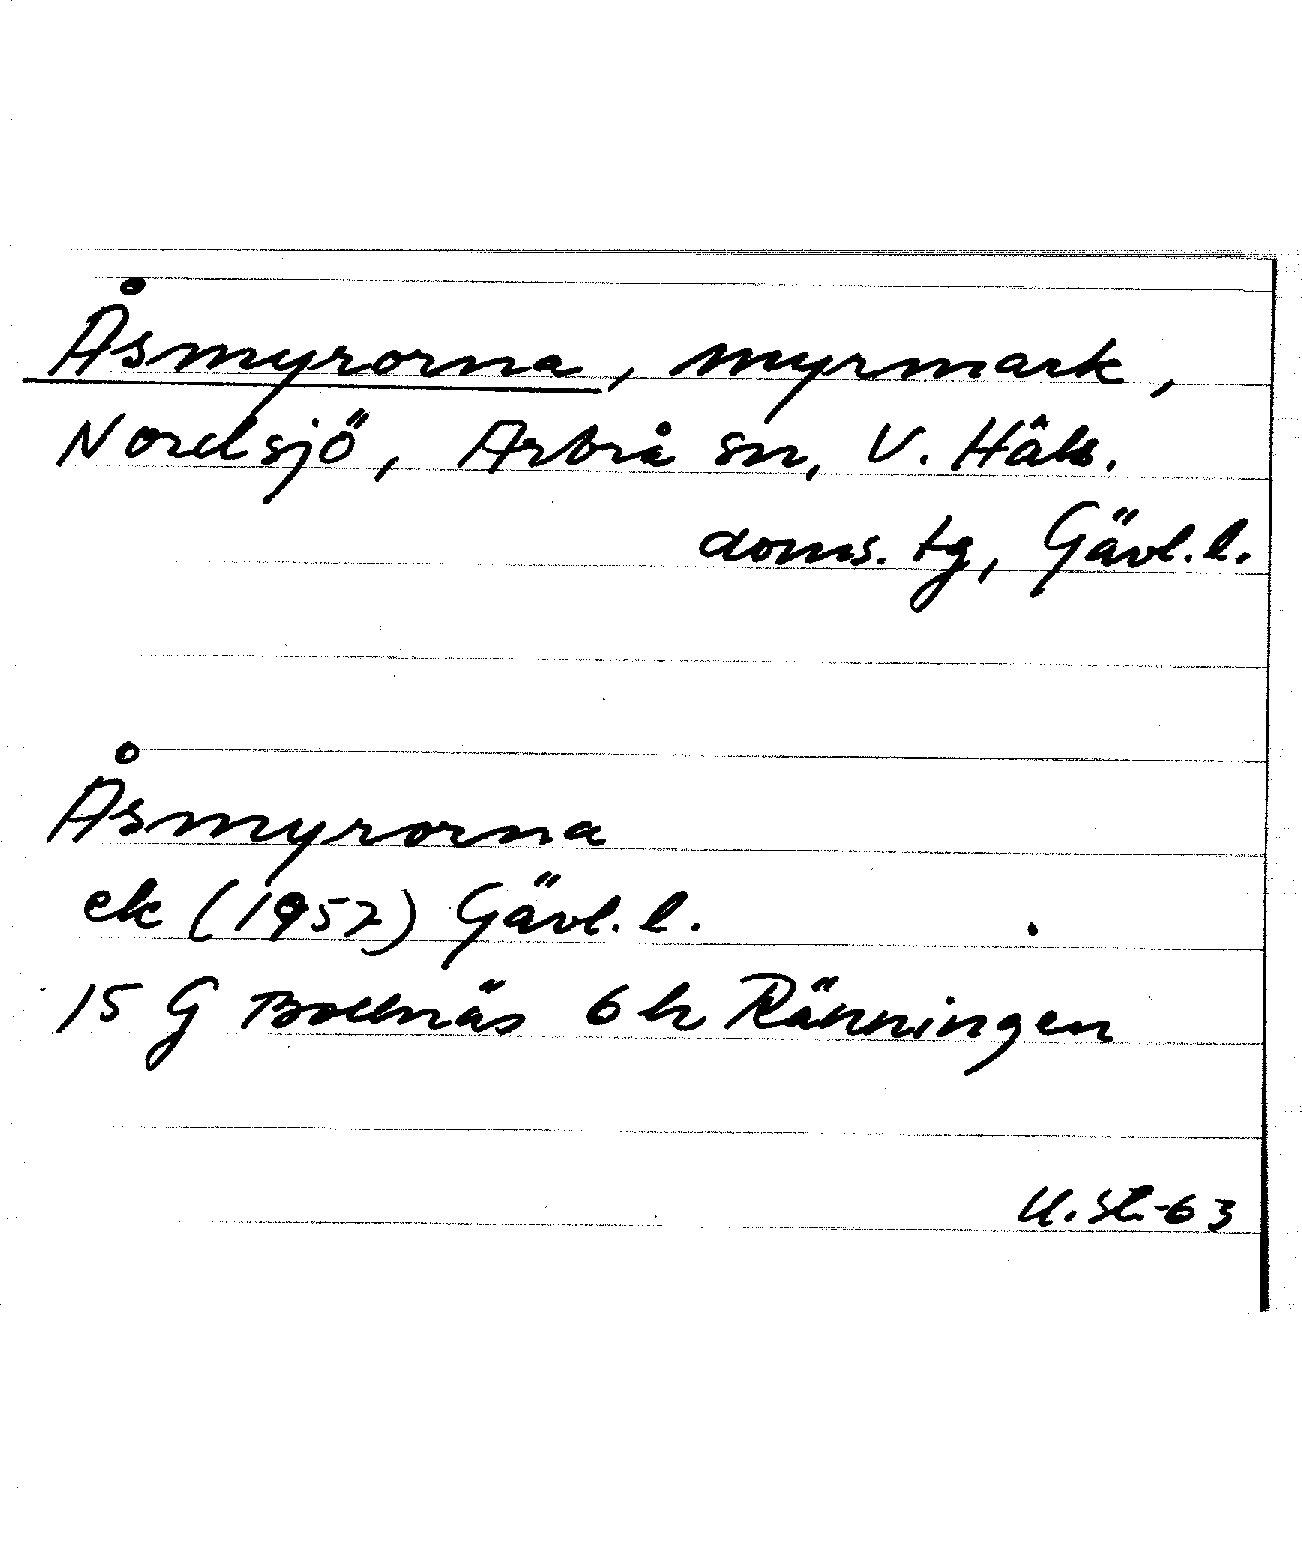 Åsmyrorna, myrmark,
Nordsjö, Arbrå sn, V. Häls.
doms. tg, Gävl. l.
Åsmyrorna
ek (1957) Gävl. l.
15 G Bollnäs 6 h Ränningen
U. Sl.-63